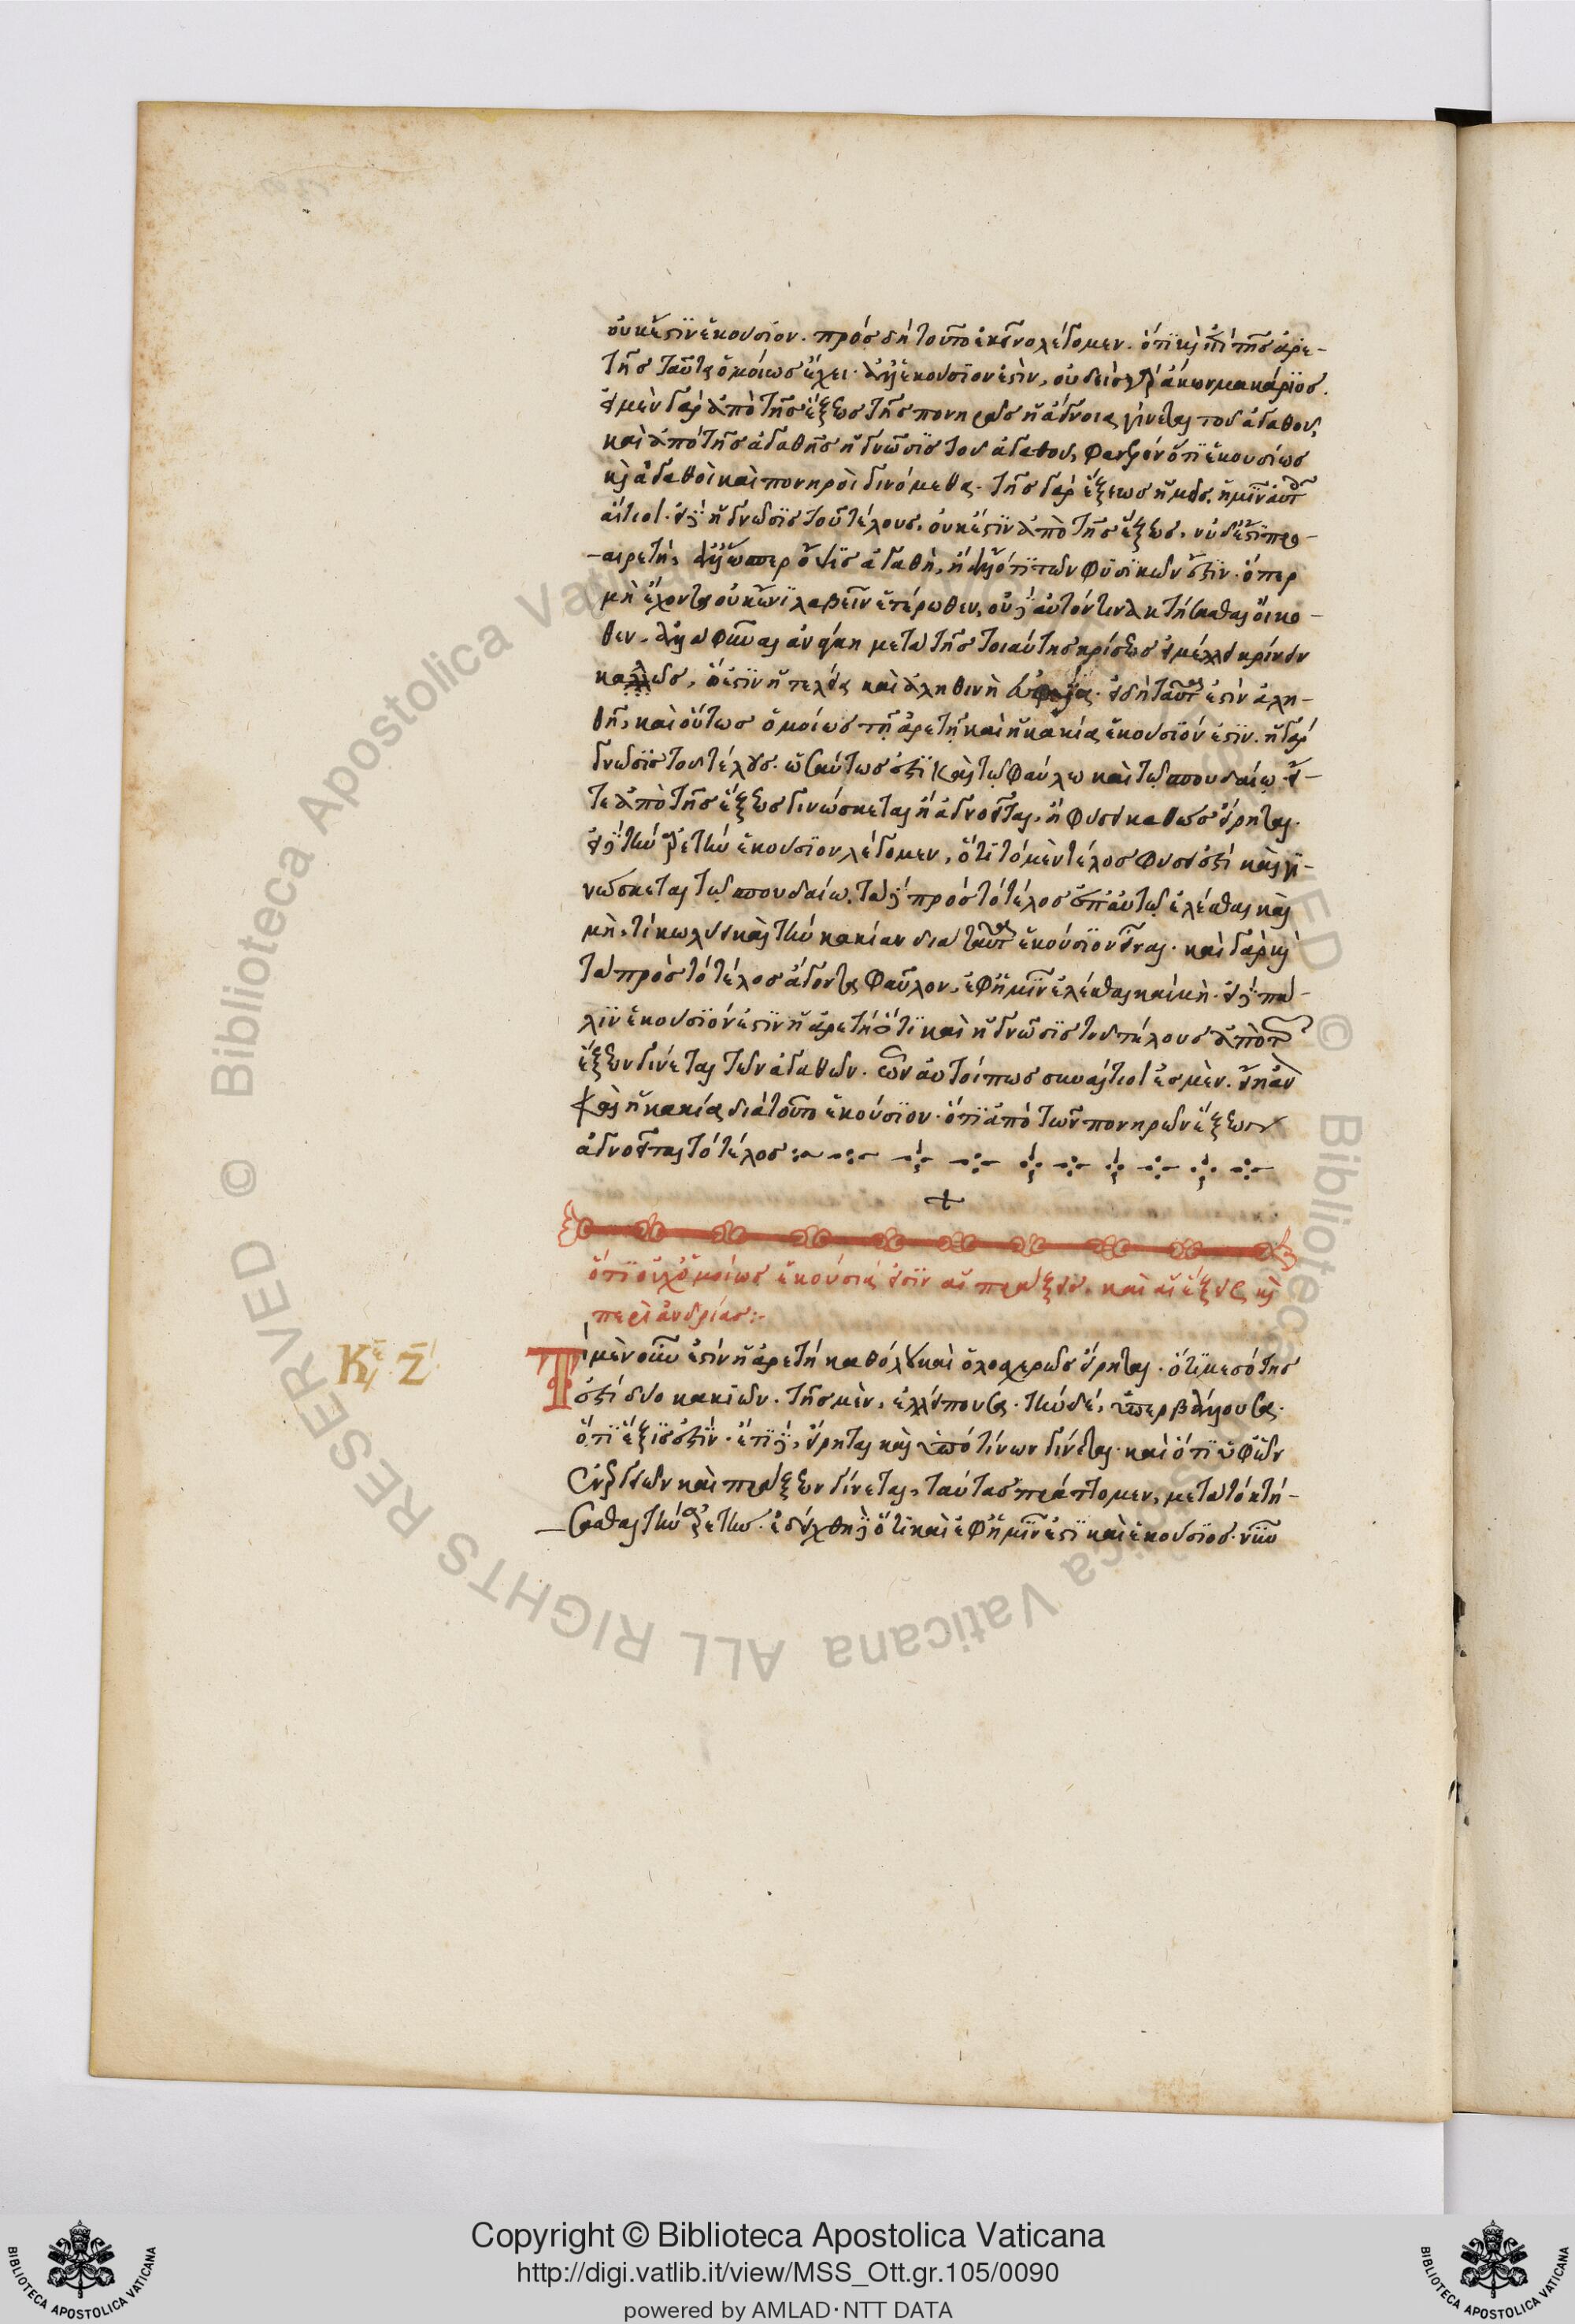 οὐκ ἔστιν ἑκούσιον. πρὸς δὴ τοῦτο ἐκεῖνο λέγομεν. ὅτι καὶ ἐπὶ τῆς ἀρε-
τῆς ταῦτα ὁμοίως ἔχει. ἀλλ' ἑκούσιον ἐστὶν, οὐδεὶς γὰρ ἄκων μακάριος.
εἰ μὲν γὰρ ἀπὸ τῆς ἕξεως τῆς πονηρᾶς ἡ ἄγνοια γίνεται τοῦ ἀγαθοῦ,
καὶ ἀπὸ τῆς ἀγαθῆς ἡ γνῶσις τοῦ ἀγαθοῦ, φανερὸν ὅτι ἑκουσίως
καὶ ἀγαθοὶ καὶ πονηροὶ γινόμεθα. τῆς γὰρ ἕξεως ἡμᾶς, ἡμῖν αὐτ
αἴτιοι. εἰ δὲ ἡ γνῶσις τοῦ τέλους, οὐκ ἔστιν ἀπὸ τῆς ἕξεως, οὐδ' ἔστι προ-
-αιρετὴ, ἀλλ' ὥσπερ ὄψις ἀγαθὴ, ἢ ἄλλό τι τῶν φυσικῶν ἐστιν. ὅπερ
μὴ ἔχοντα οὐκ ἔνι λαβεῖν ἑτέρωθεν, οὐδὲ αὐτόν τινα κτήσασθαι οἴκο-
θεν. ἀλλὰ φῦναι ἀνάγκη μετὰ τῆς τοιαύτης κρίσεως εἰ μέλλει κρίνειν
καλῶς, ὅ ἐστιν ἡ τελεία καὶ ἀληθινὴ εὐφυΐα. εἰ δὴ ταῦτ ἐστὶν ἀλη-
θῆ, καὶ οὕτως ὁμοίως τῇ ἀρετῇ καὶ ἡ κακία ἑκούσιόν ἐστιν. ἡ γὰρ
γνῶσις τοῦ τέλους. ὡσαύτως ἐστὶ καὶ τῷ φαύλω καὶ τῷ σπουδαίῳ. εἴ-
τε ἀπὸ τῆς ἕξεως γινώσκεται ἢ ἀγνοεῖται, ἢ φύσει καθὼς εἴρηται.
εἰ δὲ τὴν ἀρετὴν ἑκούσιον λέγομεν, ὅτι τὸ μὲν τέλος φύσει ἐστὶ καὶ γι-
νώσκεται τῷ σπουδαίω. τὰ δὲ πρὸς τὸ τέλος ἐπ' αὐτῷ ἑλέσθαι καὶ
μὴ, τί κωλύει καὶ τὴν κακίαν διὰ ταῦτ ἑκούσιον εἶναι. καὶ γὰρ καὶ
τὰ πρὸς τὸ τέλος ἄγοντα φαῦλον, ἐφ' ἡμῖν ἑλέσθαι καὶ μὴ. εἰ δὲ πά-
λιν ἑκούσιόν ἐστιν ἡ ἀρετὴ ὅτι καὶ ἡ γνῶσις τοῦ τέλους ἀπὸ τ
ἕξεων γίνεται τῶν ἀγαθῶν. ὧν αὐτοί πως συναίτιοί ἐσμεν. εἴη ἂν
καὶ ἡ κακία διὰ τοῦτο ἑκούσιον. ὅτι ἀπὸ τῶν πονηρῶν ἕξεων
ἀγνοεῖται τὸ τέλος:
ὅτι οὐχ ὁμοίως ἑκούσιά εἰσιν αἱ πράξεις. καὶ αἱ ἕξεις καὶ
περὶ ἀνδρίας:
Τί μὲν οὖν ἐστὶν ἡ ἀρετὴ καθόλου καὶ ὁλοσχερῶς εἴρηται. ὅτι μεσότης
ἐστὶ δύο κακιῶν. τῆς μὲν, ἐλλείπουσα. τὴν δὲ, ὑπερβάλλουσα.
ὅτι ἕξις ἐστὶν. ἔτι δὲ, εἴρηται καὶ ὑπὸ τίνων γίνεται. καὶ ὅτι ὑφ' ὧν
ἐνεργειῶν καὶ πράξεων γίνεται, ταύτας πράττομεν, μετὰ τὸ κτή-
σασθαι τὴν ἀρετὴν. ἐδείχθη δὲ ὅτι καὶ ἐφ' ἡμῖν ἐστὶ καὶ ἑκούσιος. νῦν
Κε ζ
Copyright © Biblioteca Apostolica Vaticana
http://digi.vatlib.it/view/MSS_Ott.gr.105/0090
powered by AMLAD·NTT DATA
BIBLIOTECA APOSTOLICA VATICANA
BIBLIOTECA APOSTOLICA VATICANA
© Biblioteca Apostolica Vaticana ALL RIGHTS RESERVED